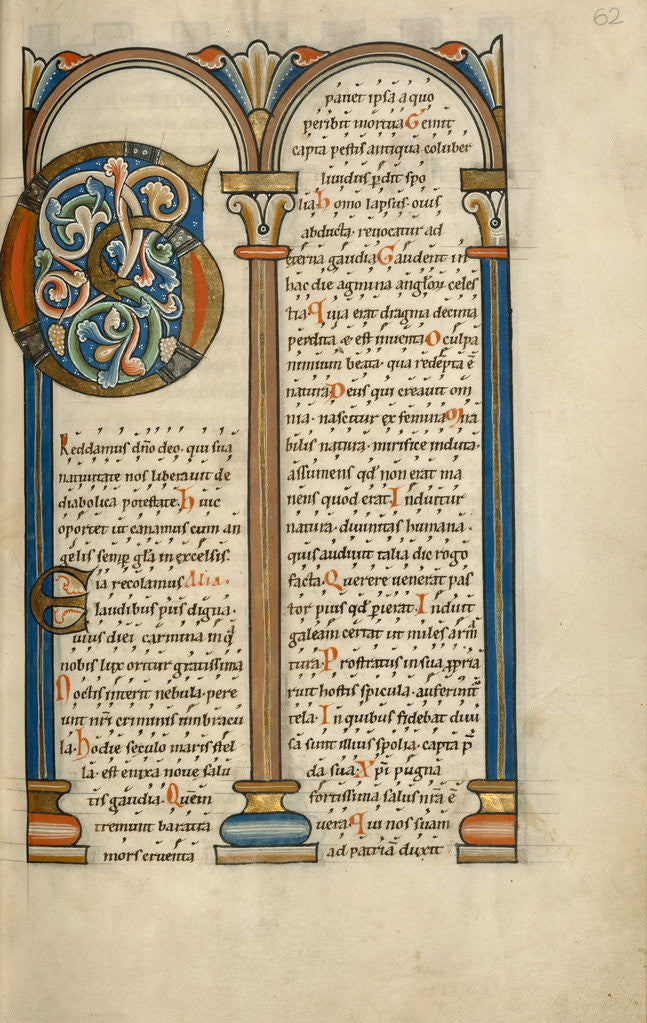 62
G
Reddamus dño deo. qui sua
natiuitate nos liberauit de
diabolica potestate. Huic
oportet ut canamus cum an
gelis semp̱ gl̃a in excelsis.
Eia recolamus Alia.
laudibus piis digna.
uius diei carmina in q̃
nobis lux oritur gratissima
Noctis interit nebula. pere
unt nr̃i criminis umbracu
la. Hodie seculo maris stel
la. est enixa noue salu
tis gaudia. Quem
tremunt baratra
mors cruenta
pauet ipsa a quo
peribit mortua Gemit
capta pestis antiqua coluber
liuidus ꝑdit spo
lia. Homo lapsus. ouis
abducta. reuocatur ad
eterna gaudia Gaudent in
hac die agmina anglꝝ celes
tia. Quia erat dragma decima
perdita & est inuenta O culpa
nimium beata. qua redepta ẽ
natura. Deus qui creauit om
nia. nascitur ex femina Mira
bilis natura. mirifice induta.
assumens qd̃ non erat ma
nens quod erat. Induitur
natura. diuinitas humana.
quis audiuit talia dic rogo
facta. Querere uenerat pas
tor pius qd̃ ꝑierat. Induit
galeam certat ut miles arm̃
tura. Prostratus in sua ꝓpria
ruit hostis spicula. auferunt̃
tela. In quibus fidebat diui
sa sunt illius spolia. capta p̃
da sua. Xp̃i pugna
fortissima salus nr̃a ẽ
uera. Qui nos suam
ad patriã duxit